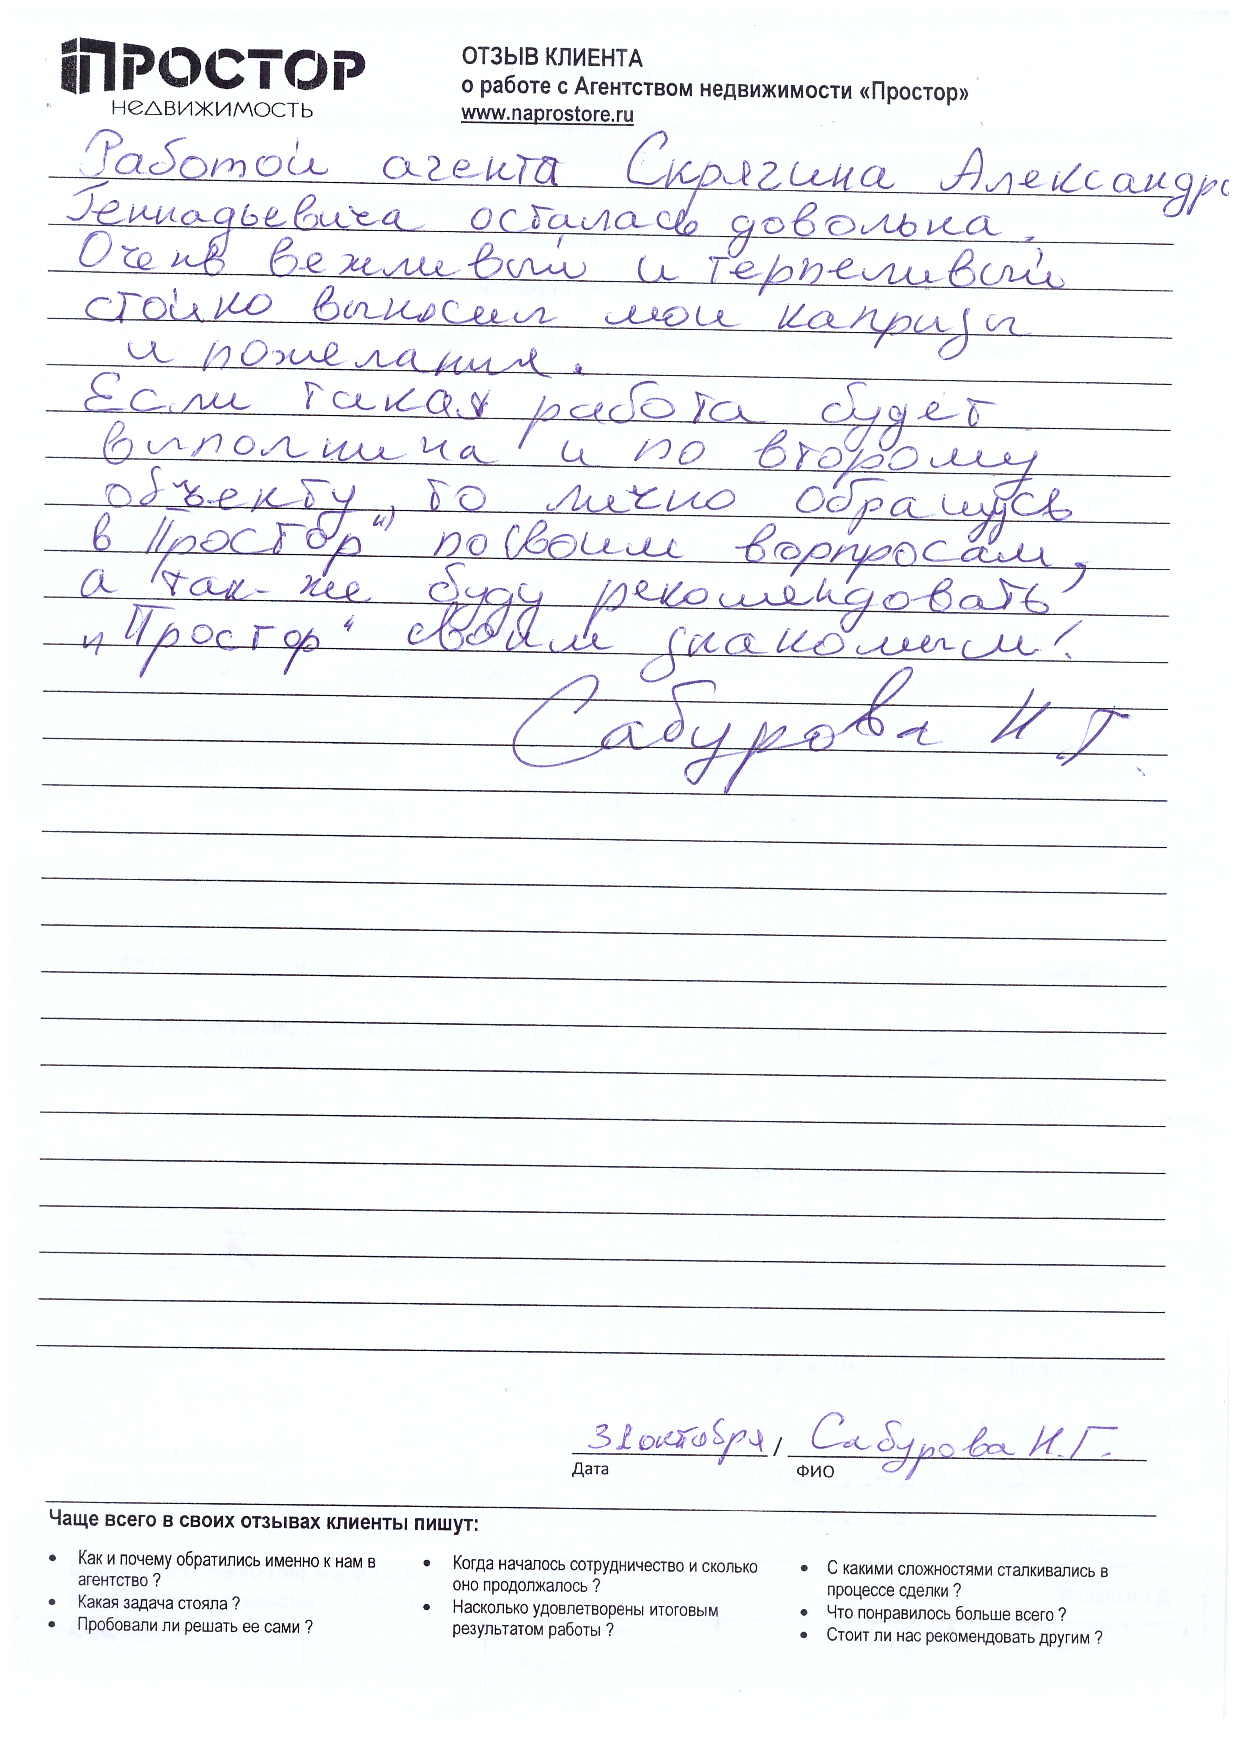 ПРОСТОР
НЕДВИЖИМОСТЬ
ОТЗЫВ КЛИЕНТА
о работе с Агентством недвижимости «Простор»
www.naprostore.ru
Работой агента Скрягина Александра
Геннадьевича осталась довольна.
Очень вежливый и терпеливый
стойко выносил мои капризы
и пожелания.
Если такая работа будет
выполнина и по второму
объекту, то лично обращусь
в "Простор" по своим ворпросам,
а так-же буду рекомендовать
"Простор" своим знакомым!
Сабурова Н Г
31 октября / Сабурова Н.Г.
Дата ФИО
Чаще всего в своих отзывах клиенты пишут:
• Как и почему обратились именно к нам в
агентство ?
• Какая задача стояла ?
• Пробовали ли решать ее сами ?
• Когда началось сотрудничество и сколько
оно продолжалось ?
• Насколько удовлетворены итоговым
результатом работы ?
• С какими сложностями сталкивались в
процессе сделки ?
• Что понравилось больше всего ?
• Стоит ли нас рекомендовать другим ?